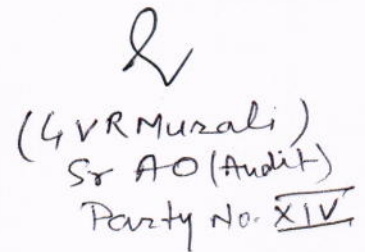 (GVRMurali)
Sr AO (Audit)
Party No. XIV